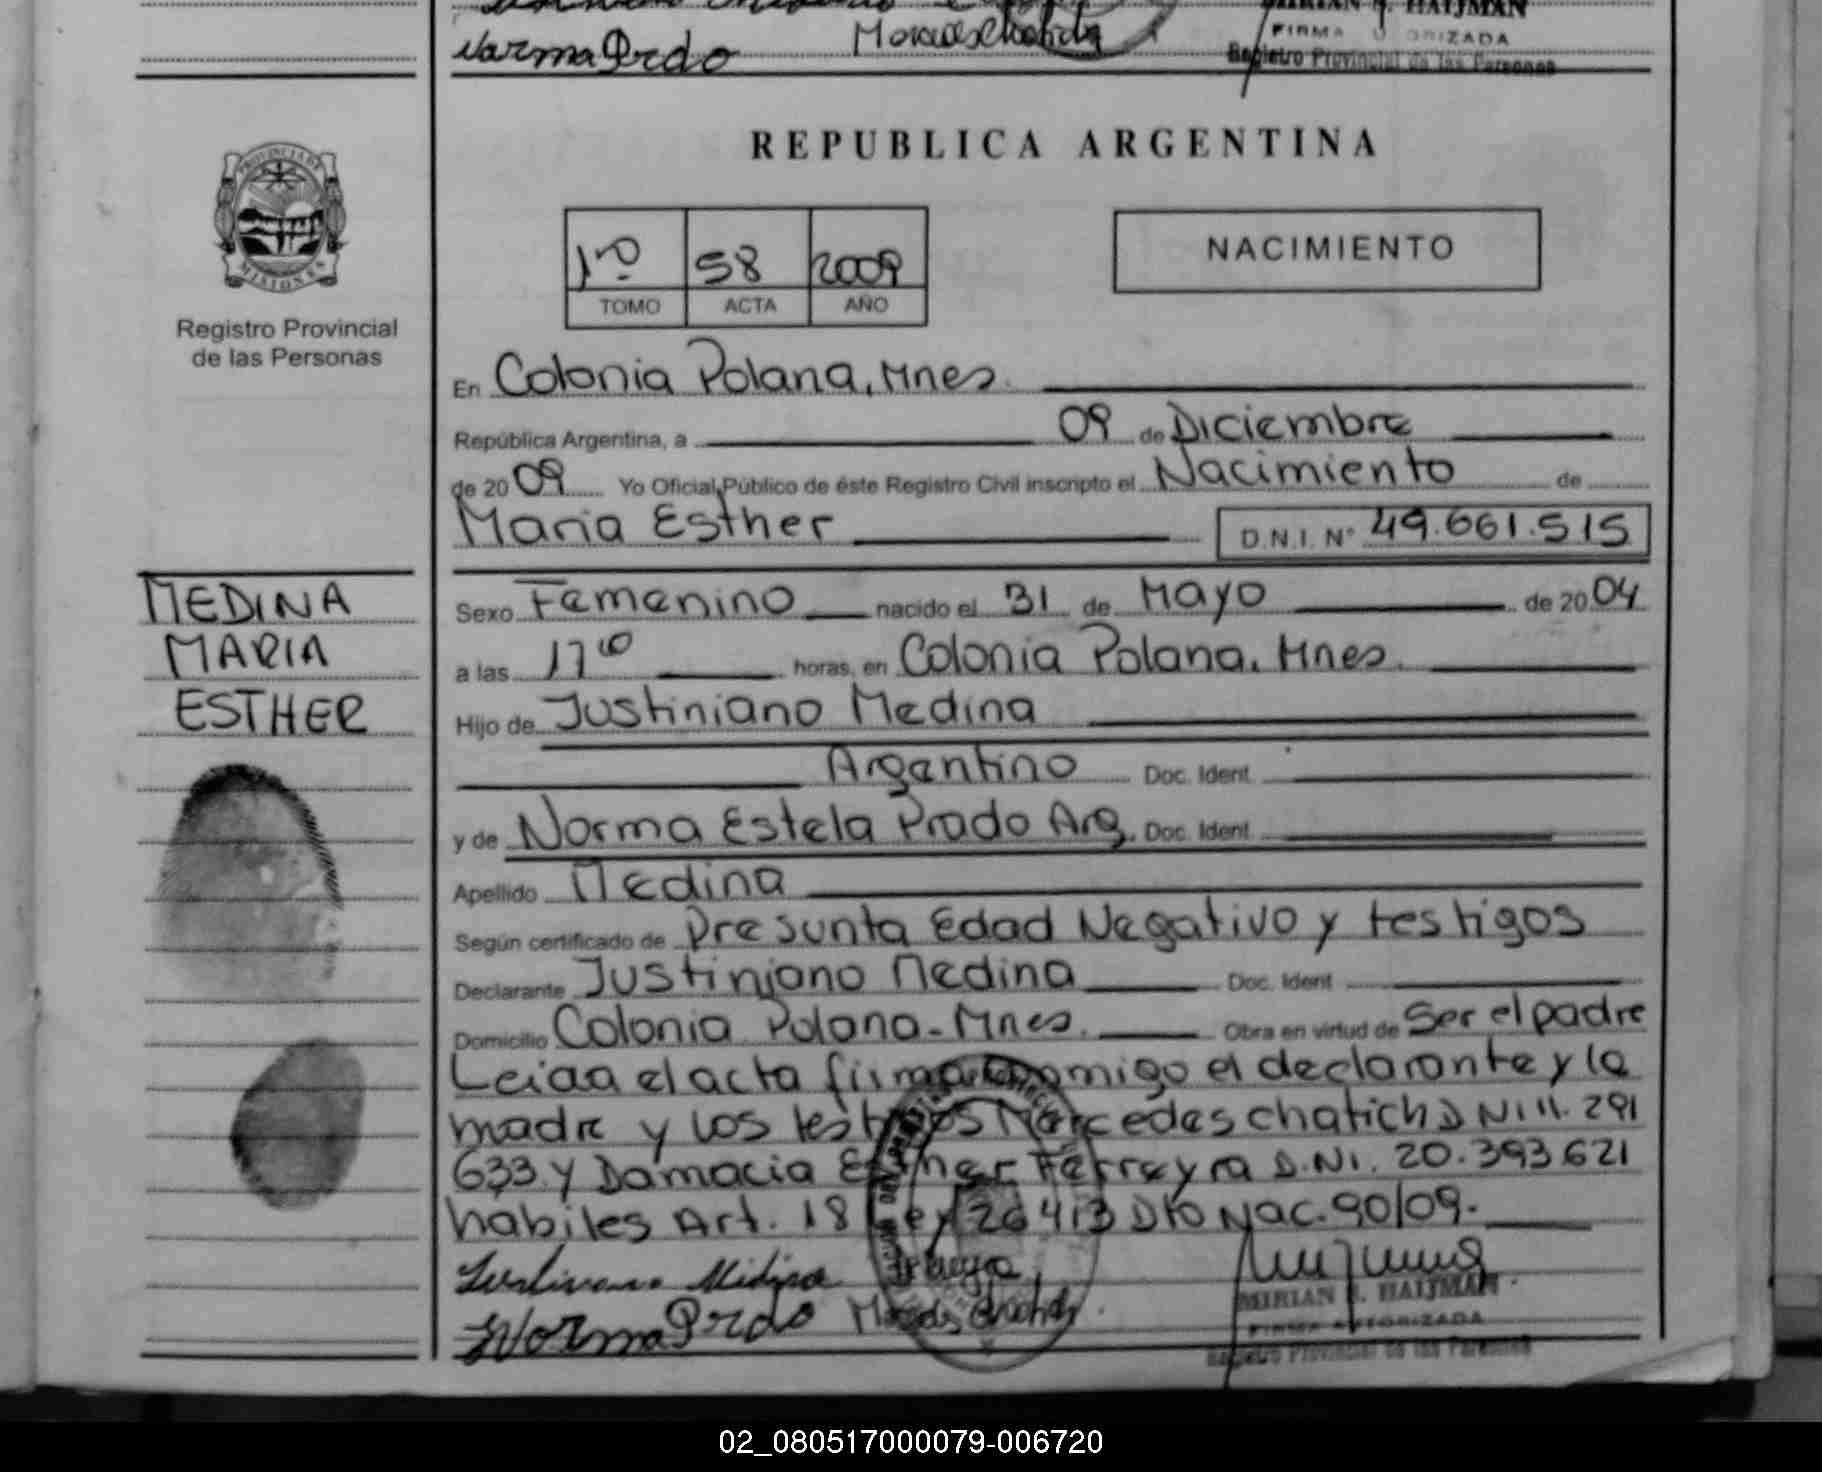 Norma Prdo
MIRIAN J. HAIJMAN
FIRMA AUTORIZADA
Registro Provincial de las Personas
REPUBLICA ARGENTINA
PROVINCIA DE
MISIONES
1º 58 2009
TOMO ACTA AÑO
NACIMIENTO
Registro Provincial
de las Personas
En Colonia Polana, Mnes.
República Argentina, a 09 de Diciembre
de 2009 Yo Oficial Público de éste Registro Civil inscripto el Nacimiento de
Maria Esther D.N.I. Nº 49.661.515
MEDINA
MARIA
ESTHER
Sexo Femenino nacido el 31 de Mayo de 2004
a las 17 00 horas, en Colonia Polana. Mnes.
Hijo de Justiniano Medina
Argentino Doc. Ident.
y de Norma Estela Prado Arg. Doc. Ident.
Apellido Medina
Según certificado de Presunta Edad Negativo y testigos
Declarante Justiniano Medina Doc. Ident.
Domicilio Colonia Polana - Mnes. Obra en virtud de Ser el padre
Leiaa el acta firman comigo el declarante y la
madre y los testigos Mercedes chatich DNI 11. 291
633 y Damacia Esther Ferreyra D.NI. 20.393.621
habiles Art. 18 Ley 26413 Dto Nac. 90/09.-
Norma Prdo
MIRIAN J. HAIJMAN
FIRMA AUTORIZADA
Registro Provincial de las Personas
02_080517000079-006720